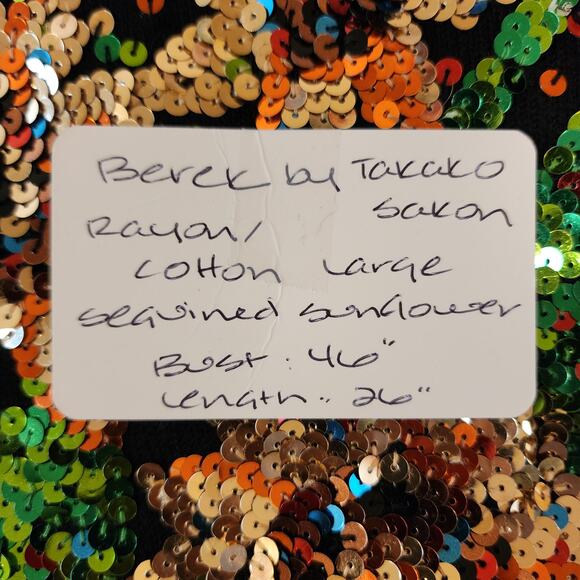 Berek by Takako
Sakon
Rayon/
Cotton Large
sequined sunflower
Bust: 46"
Length: 26"